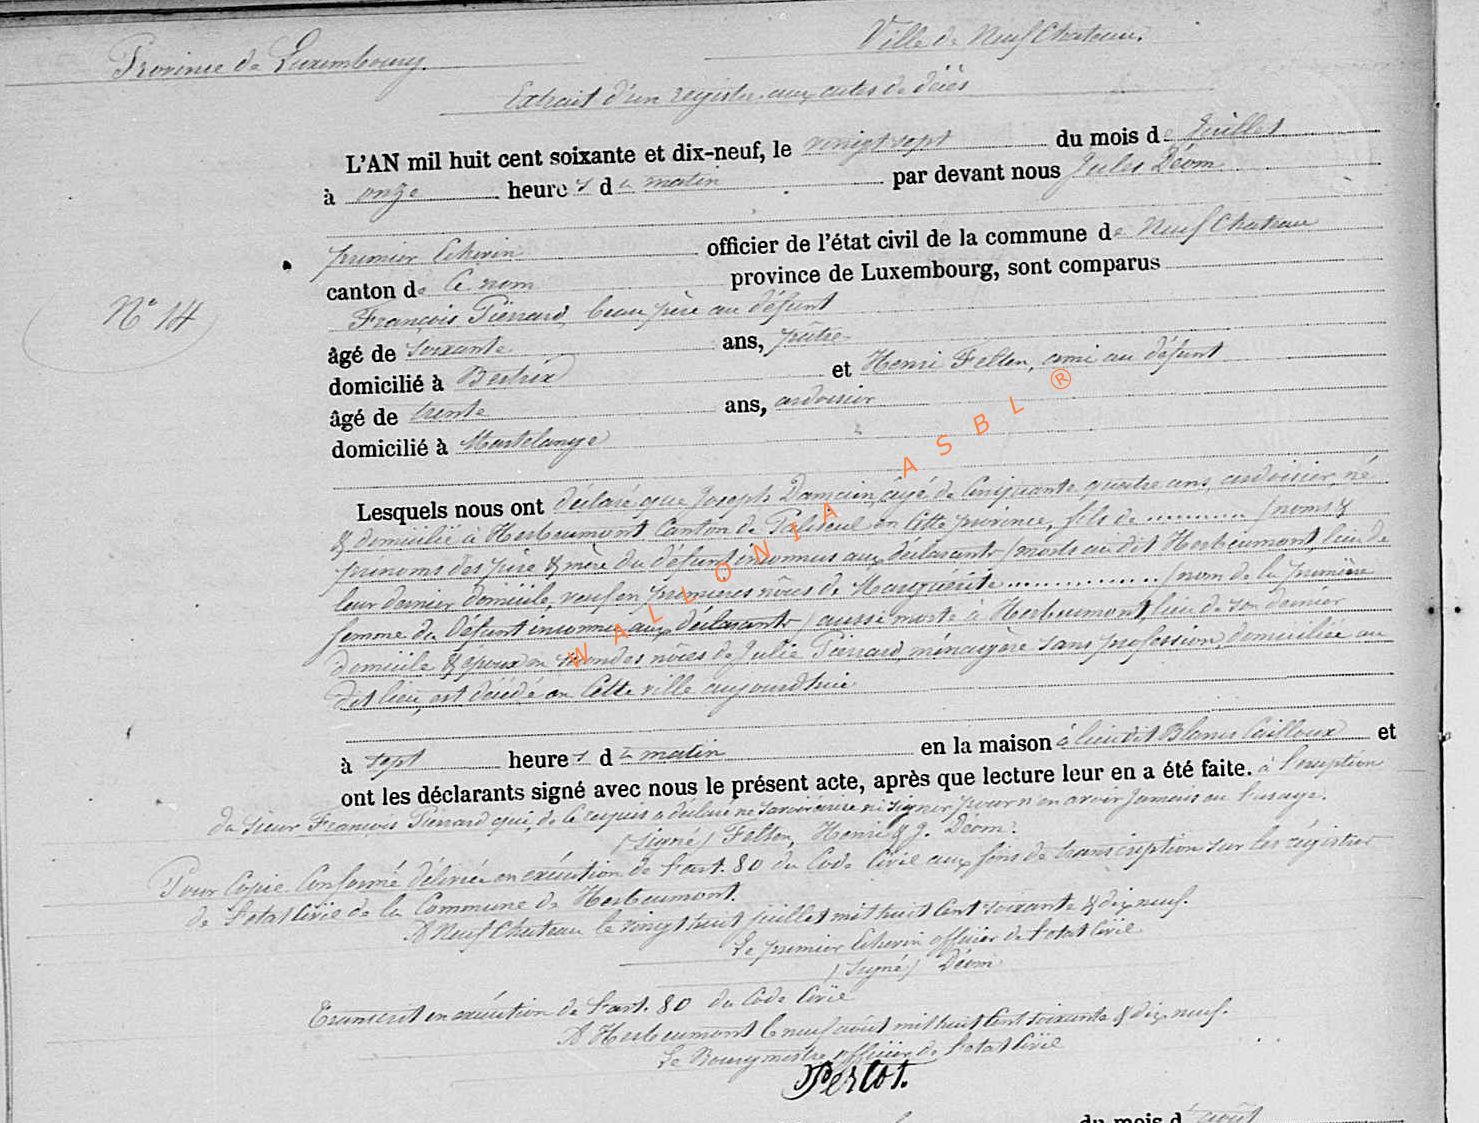 Province de Luxembourg.
Ville de Neufchateau.
Extrait d'un registre aux actes de décès
L'AN mil huit cent soixante et dix-neuf, le vingt sept du mois de Juillet
à onze heures du matin par devant nous Jules Déom
premier Echevin officier de l'état civil de la commune de Neufchateau
canton de Ce nom province de Luxembourg, sont comparus
N° 14
François Pierrard, beau père au défunt
âgé de soixante ans, pâtre
domicilié à Bertrix et Henri Felten, ami au défunt
âgé de trente ans, ardoisier
domicilié à Martelange
Lesquels nous ont déclaré que Joseph Damain, âgé de Cinquante quatre ans, ardoisier, né
& domicilié à Herbeumont Canton de Paliseul en Cette province, fils de .......... (noms &
prénoms des père & mère du défunt inconnus aux déclarants) morts au dit Herbeumont, lieu de
leur dernier domicile, veuf en premières nôces de Marguérite .............. (nom de la première
femme du défunt inconnu aux déclarants) aussi morte à Herbeumont, lieu de son dernier
domicile & époux en secondes nôces de Julie Pierrard, ménagère sans profession, domiciliée au
dit lieu, est décédé en Cette ville aujourdhui
à sept heures du matin en la maison à lieu dit Blancs Cailloux et
ont les déclarants signé avec nous le présent acte, après que lecture leur en a été faite. à l'exception
du sieur François Pierrard qui, de Ce requis a déclaré ne savoir écrire ni signer pour n'en avoir jamais eu l'usage.
(signé) Felten, Henri & J. Déom.
Pour Copie Conforme délivrée en exécution de l'art. 80 du Code Civil aux fins de transcription sur les régistres
de l'etat Civil de la Commune de Herbeumont.
A Neufchateau le vingt huit juillet mil huit Cent soixante & dix neuf.
Le premier Echevin officier de l'etat Civil
(signé) Déom
Transcrit en exécution de l'art. 80 du Code Civil
A Herbeumont le neuf août mil huit Cent soixante & dix neuf.
Le Bourgmestre officier de l'etat Civil
Perlot.
du mois d'août
WALLONIA ASBL ®